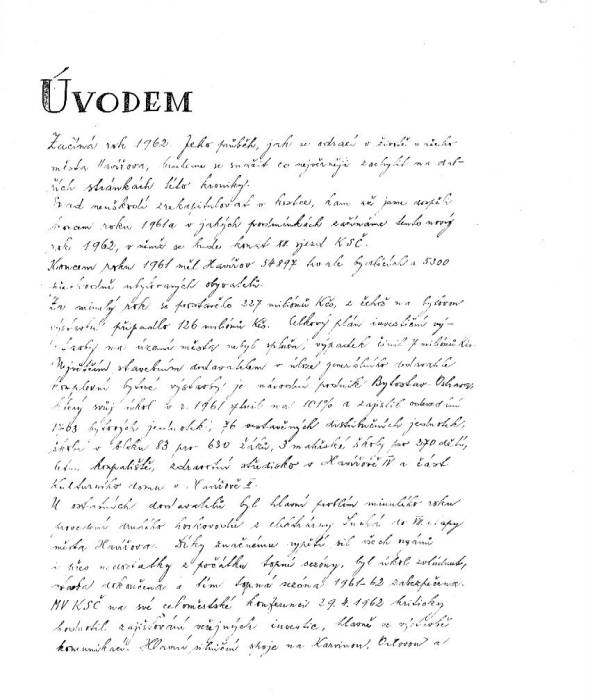 ÚVODEM
Začíná rok 1962. Jeho průběh, jak se odrazí v životě našeho
města Havířova, budeme se snažit co nejvěrněji zachytit na dal-
ších stránkách této kroniky.
Snad neuškodí zrekapitulovat v krátce, kam až jsme dospěli
koncem roku 1961 a v jakých podmínkách začínáme tento nový
rok 1962, v němž se bude konat XII. sjezd KSČ.
Koncem roku 1961 měl Havířov 54 897 trvale bydlících a 5300
přechodně ubytovaných obyvatel.
Za minulý rok se prostavělo 227 milionů Kčs, z čehož na bytovou
výstavbu připadlo 126 milionů Kčs. Celkový plán investiční vý-
stavby na území města nebyl splněn, výpadek činil 7 milionů Kčs.
Největším stavebním dodavatelem v úloze generálního dodavatele
komplexní bytové výstavby je národní podnik Bytostav Ostrava,
který svůj úkol v r. 1961 splnil na 101% a zajistil odevzdání
1763 bytových jednotek, 76 vestavěných distribučních jednotek,
školu v bloku 83 pro 630 žáků, 3 mateřské školy pro 270 dětí,
letní koupaliště, zdravotní středisko v Havířově IV a část
kulturního domu v Havířově II.
U ostatních dodavatelů byl hlavní problém minulého roku
provedení druhého horkovodu z elektrárny Suchá do VII. etapy
města Havířova. Díky značnému vypětí sil všech orgánů
i přes nedostatky z počátku topné sezóny, byl úkol zvládnut,
stavba dokončena a tím topná sezóna 1961-62 zabezpečena.
MV KSČ na své celoměstské konferenci 29. 4. 1962 kriticky
hodnotil zajišťování veřejných investic, hlavně ve výstavbě
komunikací. Hlavní silniční spoje na Karvinou, Orlovou a